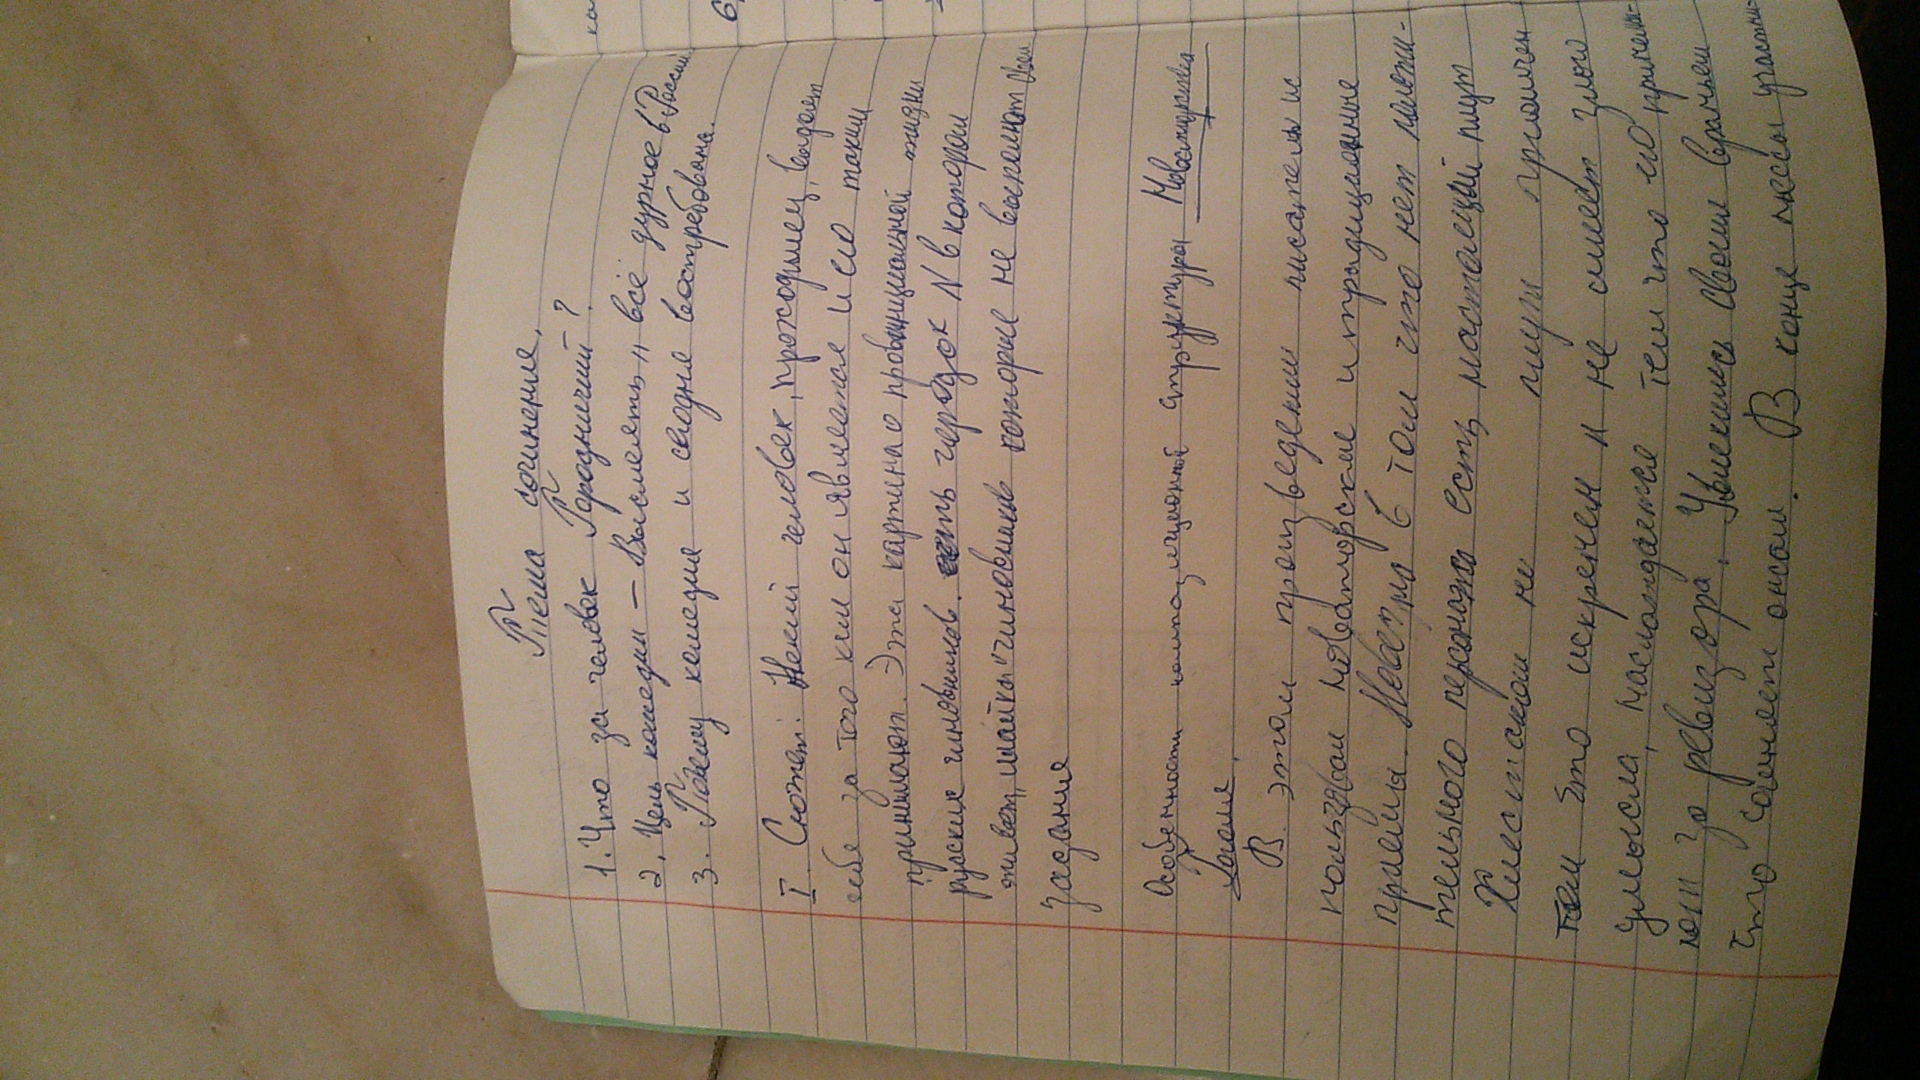 Тема сочинения.
1. Что за человек Городничий?
2. Цель комедии – Высмеять „ всё дурное в России
3. Почему комедия и сегодня востребована.
I Сюжет: Некий человек, проходимец, выдаёт
себя за того кем он является и его таким
принимают. Эта картина о провинциальной жизни
русских чиновников. городок N в котором
живёт, шайка чиновников которые не выполняют свои
задания
Особенности композиционной структуры Новаторство
Гоголя.
В этом произведении писатель ис
пользовал новаторские и традиционные
приёмы. в том что нет положи-
тельного персонажа есть настоящий плут
Хлестаков не плут
там это искренен и не имеет злого
умысла, наслаждается тем что его принима-
ют за ревизора. Увлекшись своим враньём
что сочиняет онсам. В конце пьесы